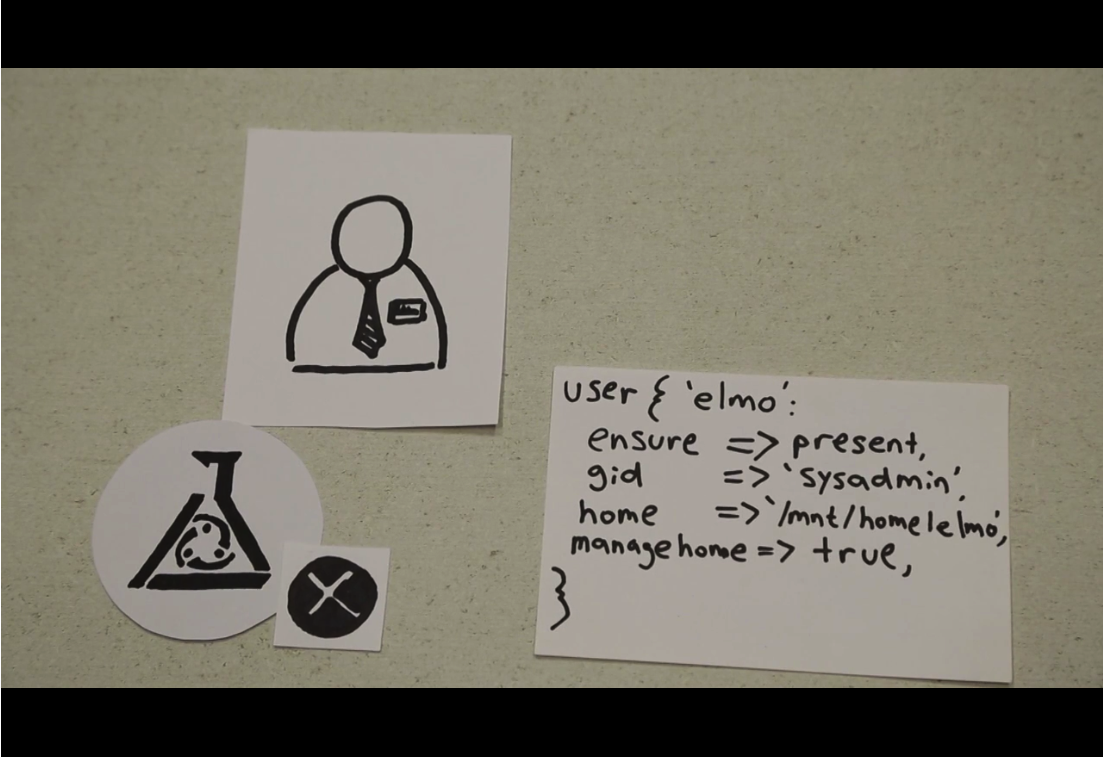 user { 'elmo':
ensure => present,
gid => 'sysadmin',
home => '/mnt/home/elmo',
managehome => true,
}